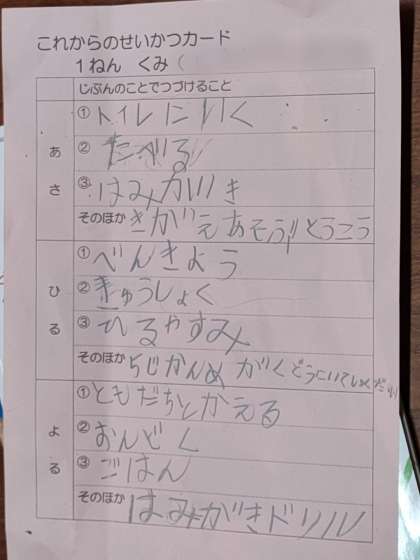 これからのせいかつカード
1ねん くみ(
じぶんのことでつづけること
あさ
①トイレにいく
②たべる
③はみがいき
そのほか きがえ あそぶ とうこう
ひる
①べんきよう
②きゅうしょく
③ひるやすみ
そのほか 5じかんめ がくどうにいて
よる
①ともだちとかえる
②おんどく
③ごはん
そのほか はみがきドリル